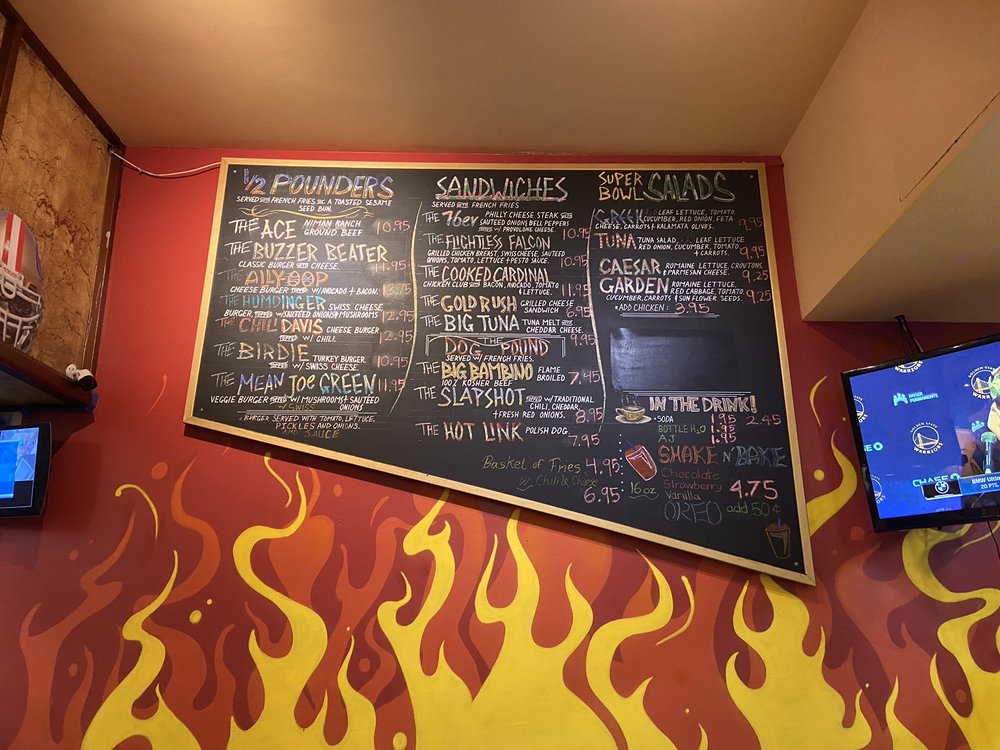 1/2 POUNDERS
SERVED WITH FRENCH FRIES ON A TOASTED SESAME
SEED BUN.
THE ACE NIMAN RANCH GROUND BEEF 10.95
THE BUZZER BEATER
CLASSIC BURGER WITH CHEESE. 11.95
THE ALLY-OOP
CHEESE BURGER TOPPED W/ AVOCADO + BACON. 13.75
THE HUMDINGER SWISS CHEESE
BURGER TOPPED W/ SAUTEED ONIONS & MUSHROOMS 12.95
THE CHILI DAVIS CHEESE BURGER
TOPPED W/ CHILI. 12.95
THE BIRDIE TURKEY BURGER
TOPPED W/ SWISS CHEESE. 10.95
THE MEAN JOE GREEN 11.95
VEGGIE BURGER TOPPED W/ MUSHROOMS + SAUTEED
W/ SWISS ONIONS
BURGER SERVED WITH TOMATO, LETTUCE,
PICKLES AND ONIONS.
AND SAUCE
SANDWICHES
SERVED WITH FRENCH FRIES
THE 76er PHILLY CHEESE STEAK WITH
SAUTEED ONIONS BELL PEPPERS
TOPPED W/ PROVOLONE CHEESE. 10.95
THE FLIGHTLESS FALCON
GRILLED CHICKEN BREAST, SWISS CHEESE, SAUTEED
ONIONS, TOMATO, LETTUCE + PESTO SAUCE. 10.95
THE COOKED CARDINAL
CHICKEN CLUB WITH BACON, AVOCADO, TOMATO
+ LETTUCE. 11.95
THE GOLD RUSH GRILLED CHEESE
SANDWICH 6.95
THE BIG TUNA TUNA MELT WITH
CHEDDAR CHEESE. 9.95
THE
DOG POUND
SERVED W/ FRENCH FRIES.
THE BIG BAMBINO FLAME
100% KOSHER BEEF BROILED 7.45
THE SLAPSHOT TOPPED W/ TRADITIONAL
CHILI, CHEDDAR
+ FRESH RED ONIONS. 8.95
THE HOT LINK POLISH DOG. 7.95
Basket of Fries 4.95
w/ Chili & Cheese
6.95
SUPER
BOWL SALADS
GREEK LEAF LETTUCE, TOMATO,
CUCUMBER, RED ONION, FETA
CHEESE, CARROTS + KALAMATA OLIVES. 9.95
TUNA TUNA SALAD, LEAF LETTUCE
RED ONION, CUCUMBER, TOMATO,
+ CARROTS. 9.95
CAESAR ROMAINE LETTUCE, CROUTONS
+ PARMESAN CHEESE. 9.25
GARDEN ROMAINE LETTUCE,
RED CABBAGE, TOMATO,
CUCUMBER, CARROTS + SUN FLOWER SEEDS. 9.25
*ADD CHICKEN: 3.95
IN THE DRINK!
•SODA 1.95 2.45
BOTTLE H2O 1.95
AJ 1.95
SHAKE N' BAKE
16 oz
Chocolate
Strawberry 4.75
Vanilla
OREO add 50¢
KAISER PERMANENTE
GOLDEN STATE WARRIORS
WARRIORS
CHASE
BMW
20 PTS,